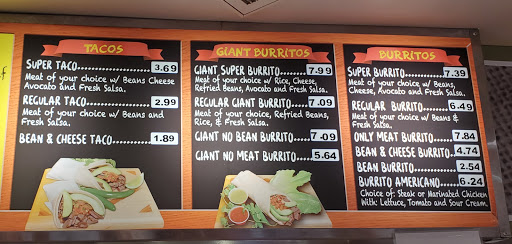 TACOS
SUPER TACO..............3.69
Meat of your choice w/ Beans Cheese
Avocado and Fresh Salsa.
REGULAR TACO...........2.99
Meat of your choice w/ Beans and
Fresh Salsa.
BEAN & CHEESE TACO....1.89
GIANT BURRITOS
GIANT SUPER BURRITO.........7.99
Meat of your choice w/ Rice, Cheese,
Refried Beans, Avocado and Fresh Salsa.
REGULAR GIANT BURRITO.....7.09
Meat of your choice, Refried Beans,
Rice, & Fresh Salsa.
GIANT NO BEAN BURRITO......7.09
GIANT NO MEAT BURRITO.....5.64
BURRITOS
SUPER BURRITO............7.39
Meat of your choice w/ Beans,
Cheese, Avocado and Fresh Salsa.
REGULAR BURRITO.........6.49
Meat of your choice w/ Beans &
Fresh Salsa.
ONLY MEAT BURRITO.......7.84
BEAN & CHEESE BURRITO..4.74
BEAN BURRITO.............2.54
BURRITO AMERICANO......6.24
Choice of: Steak or Marinated Chicken
With: Lettuce, Tomato and Sour Cream.